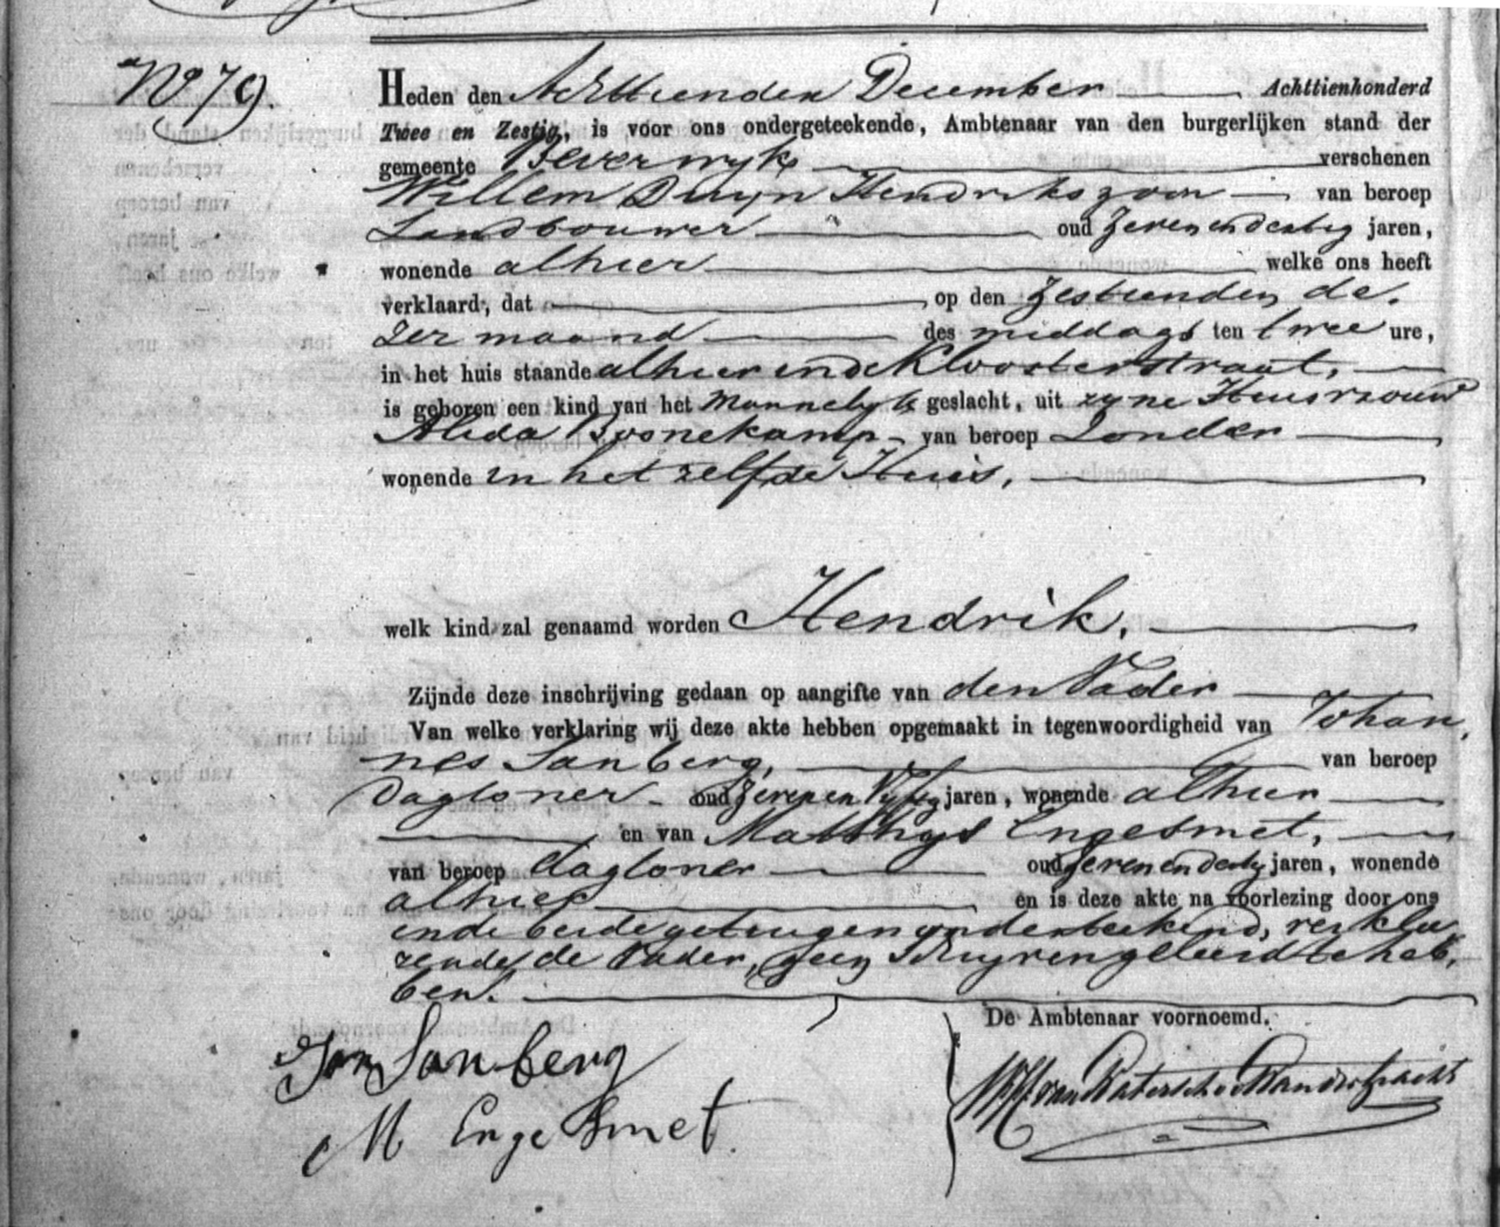 No 79.
Heden den Achttienden December Achttienhonderd
Twee en Zestig, is voor ons ondergeteekende, Ambtenaar van den burgerlijken stand der
gemeente Beverwyk verschenen
Willem Duyn Hendrikszoon van beroep
Landbouwer oud Zevenendertig jaren,
wonende alhier welke ons heeft
verklaard, dat op den Zestienden de-
zer maand des middags ten twee ure,
in het huis staande alhier in de Kloosterstraat,
is geboren een kind van het Mannelyk geslacht, uit zyne Huisvrouw
Alida Boonekamp van beroep Zonder
wonende in het zelfde Huis,
welk kind zal genaamd worden Hendrik.
Zijnde deze inschrijving gedaan op aangifte van den Vader
Van welke verklaring wij deze akte hebben opgemaakt in tegenwoordigheid van Johan-
nes Sanberg, van beroep
Dagloner oud Zevenen Vyftig jaren, wonende alhier
en van Matthys Engesmet,
van beroep dagloner oud Zevenendertig jaren, wonende
alhier en is deze akte na voorlezing door ons
ende beide getuigen onderteekend, verkla-
rende de Vader, geen Schryven geleerd te heb-
ben.
De Ambtenaar voornoemd.
Jan Sanberg
M Engesmet.